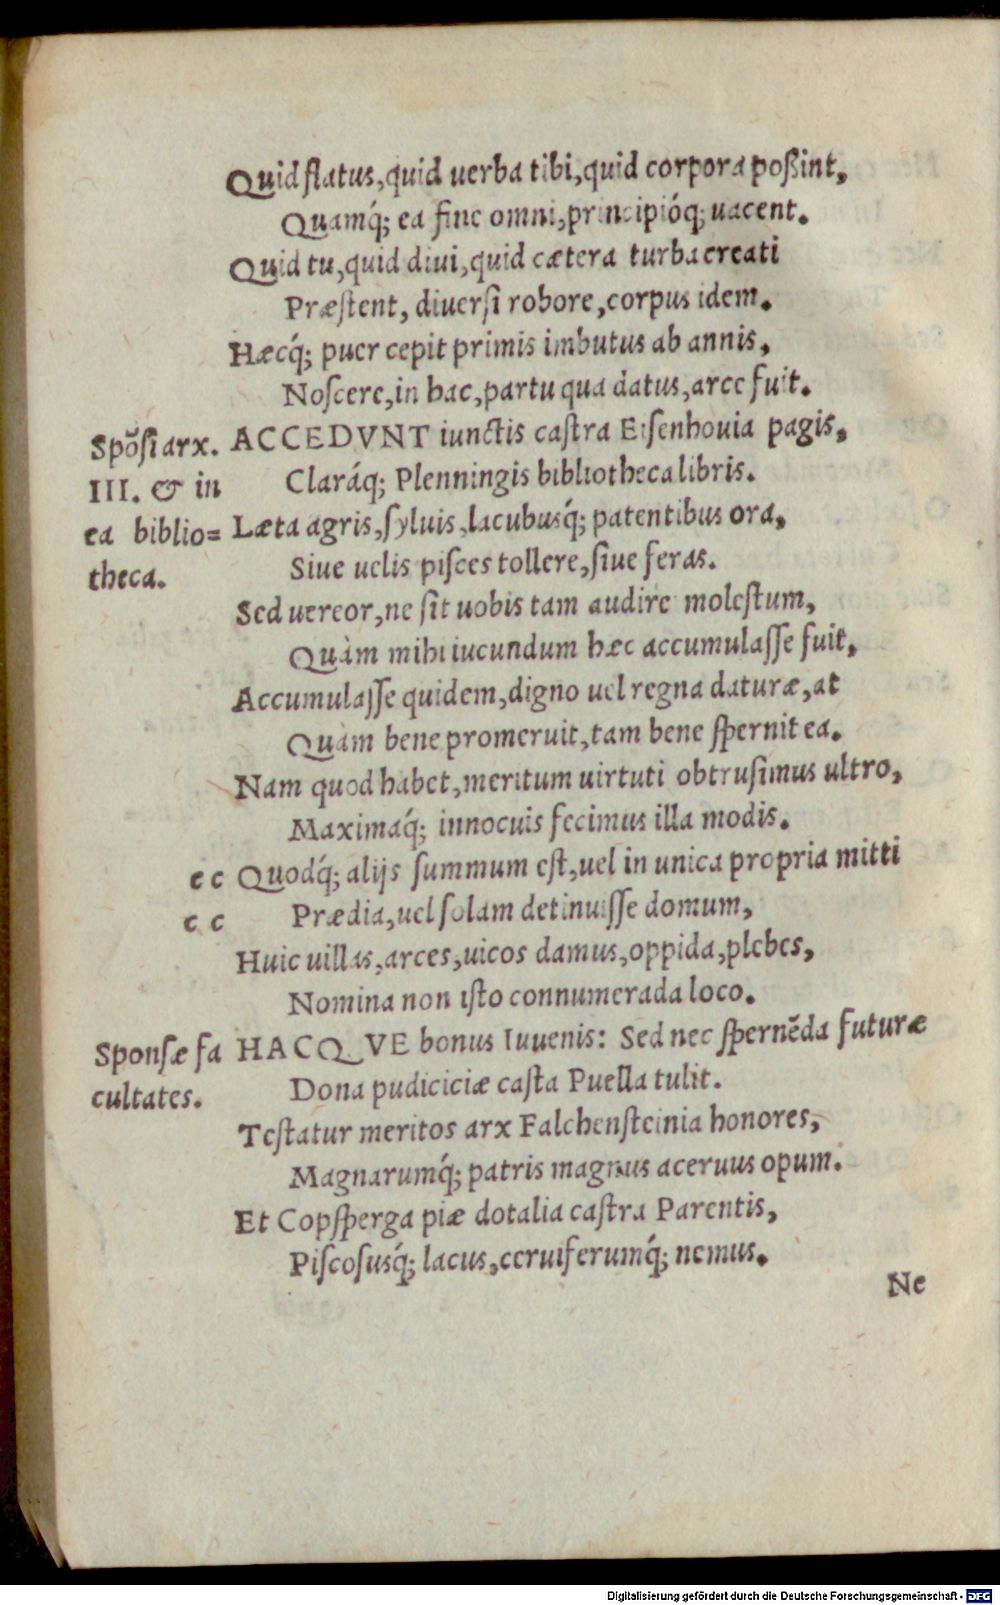 Quid flatus, quid uerba tibi, quid corpora poßint,
Quamq́; ea fine omni, principióq; uacent.
Quid tu, quid diui, quid cætera turba creati
Præſtent, diuerſi robore, corpus idem.
Hæcq́; puer cepit primis imbutus ab annis,
Noſcere, in hac, partu qua datus, arce fuit.
Spõſi arx. III. & in ea biblio= theca.
ACCEDVNT iunctis caſtra Eiſenhouia pagis,
Claráq; Plenningis bibliotheca libris.
Læta agris, ſyluis, lacubusq́; patentibus ora,
Siue uelis piſces tollere, ſiue feras.
Sed uereor, ne ſit uobis tam audire moleſtum,
Quàm mihi iucundum hæc accumulaſſe fuit,
Accumulaſſe quidem, digno uel regna daturæ, at
Quàm bene promeruit, tam bene ſpernit ea.
Nam quod habet, meritum uirtuti obtruſimus ultro,
Maximaq́; innocuis fecimus illa modis.
c c Quodq́; alijs ſummum eſt, uel in unica propria mitti
c c Prædia, uel ſolam detinuiſſe domum,
Huic uillas, arces, uicos damus, oppida, plebes,
Nomina non iſto connumerada loco.
Sponſæ fa cultates.
HACQVE bonus Iuuenis: Sed nec ſpernēda futuræ
Dona pudiciciæ caſta Puella tulit.
Teſtatur meritos arx Falchenſteinia honores,
Magnarumq́; patris magnus aceruus opum.
Et Copſperga piæ dotalia caſtra Parentis,
Piſcoſusq́; lacus, ceruiferumq́; nemus.
Ne
Digitalisierung gefördert durch die Deutsche Forschungsgemeinschaft - DFG